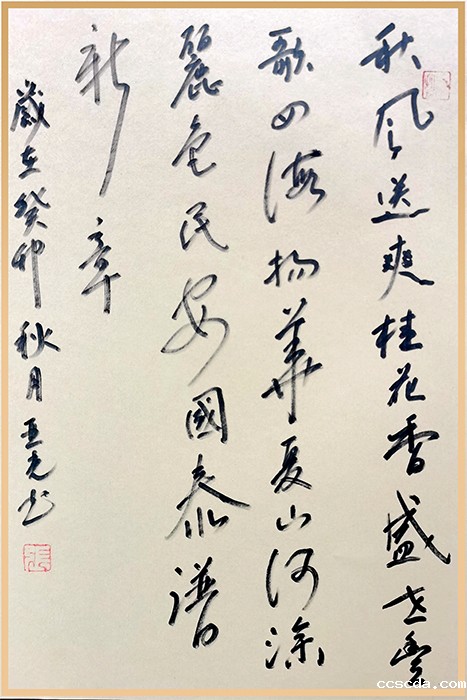 秋风送爽桂花香盛世丰
歌四海扬華夏山河添
麗色民安國泰谱
新章
歲在癸卯秋月亚光书
ccscda.com